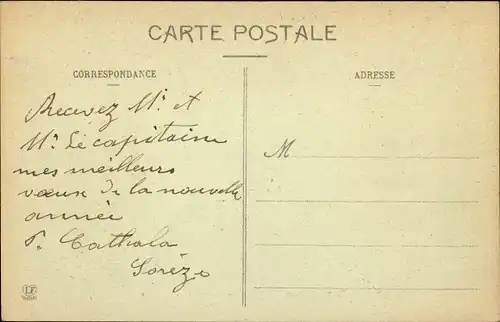 CARTE POSTALE
CORRESPONDANCE
ADRESSE
Recevez Mr et
Mr Le capitaine
mes meilleurs
vœux de la nouvelle
année
P. Cathala
Sorèze
M
LF